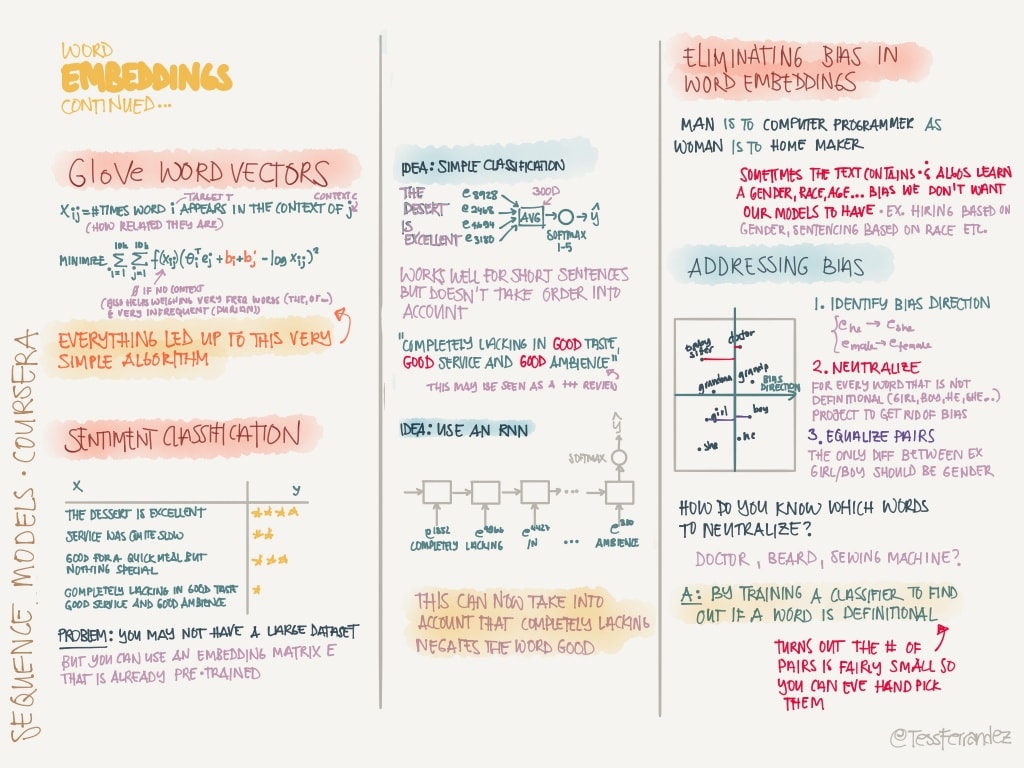 WORD
EMBEDDINGS
CONTINUED...
GloVe WORD VECTORS
TARGET T
CONTEXT C
Xij = #TIMES WORD i APPEARS IN THE CONTEXT OF j
(HOW RELATED THEY ARE)
MINIMIZE 10k Σ i=1 10k Σ j=1 f(Xij)(θiᵀej + bi + b'j - log Xij)²
0 IF NO CONTEXT
(ALSO HELPS WEIGHING VERY FREQ WORDS (THE, OF...)
& VERY INFREQUENT (DURIAN))
EVERYTHING LED UP TO THIS VERY
SIMPLE ALGORITHM
SENTIMENT CLASSIFICATION
X y
THE DESSERT IS EXCELLENT ★★★★
SERVICE WAS QUITE SLOW ★★
GOOD FOR A QUICK MEAL BUT
NOTHING SPECIAL ★★★
COMPLETELY LACKING IN GOOD TASTE ★
GOOD SERVICE AND GOOD AMBIENCE
PROBLEM: YOU MAY NOT HAVE A LARGE DATASET
BUT YOU CAN USE AN EMBEDDING MATRIX E
THAT IS ALREADY PRE-TRAINED
SEQUENCE MODELS · COURSERA
IDEA: SIMPLE CLASSIFICATION
THE e8928
DESERT e2468
IS e4694
EXCELLENT e3180
300D
AVG
ŷ
SOFTMAX
1-5
WORKS WELL FOR SHORT SENTENCES
BUT DOESN'T TAKE ORDER INTO
ACCOUNT
"COMPLETELY LACKING IN GOOD TASTE,
GOOD SERVICE AND GOOD AMBIENCE"
THIS MAY BE SEEN AS A +++ REVIEW
IDEA: USE AN RNN
ŷ
SOFTMAX
...
e1852 e4966 e4427 e330
COMPLETELY LACKING IN ... AMBIENCE
THIS CAN NOW TAKE INTO
ACCOUNT THAT COMPLETELY LACKING
NEGATES THE WORD GOOD
ELIMINATING BIAS IN
WORD EMBEDDINGS
MAN IS TO COMPUTER PROGRAMMER AS
WOMAN IS TO HOME MAKER
SOMETIMES THE TEXT CONTAINS · & ALGOS LEARN
A GENDER, RACE, AGE... BIAS WE DON'T WANT
OUR MODELS TO HAVE · EX. HIRING BASED ON
GENDER, SENTENCING BASED ON RACE ETC.
ADDRESSING BIAS
baby
sitter
doctor
grandma
grandp
BIAS
DIRECTION
girl
boy
she
he
1. IDENTIFY BIAS DIRECTION
ehe → eshe
emale → efemale
2. NEUTRALIZE
FOR EVERY WORD THAT IS NOT
DEFINITIONAL (GIRL, BOY, HE, SHE...)
PROJECT TO GET RID OF BIAS
3. EQUALIZE PAIRS
THE ONLY DIFF BETWEEN EX
GIRL/BOY SHOULD BE GENDER
HOW DO YOU KNOW WHICH WORDS
TO NEUTRALIZE?
DOCTOR, BEARD, SEWING MACHINE?
A: BY TRAINING A CLASSIFIER TO FIND
OUT IF A WORD IS DEFINITIONAL
TURNS OUT THE # OF
PAIRS IS FAIRLY SMALL SO
YOU CAN EVE HAND PICK
THEM
@TessFerrandez